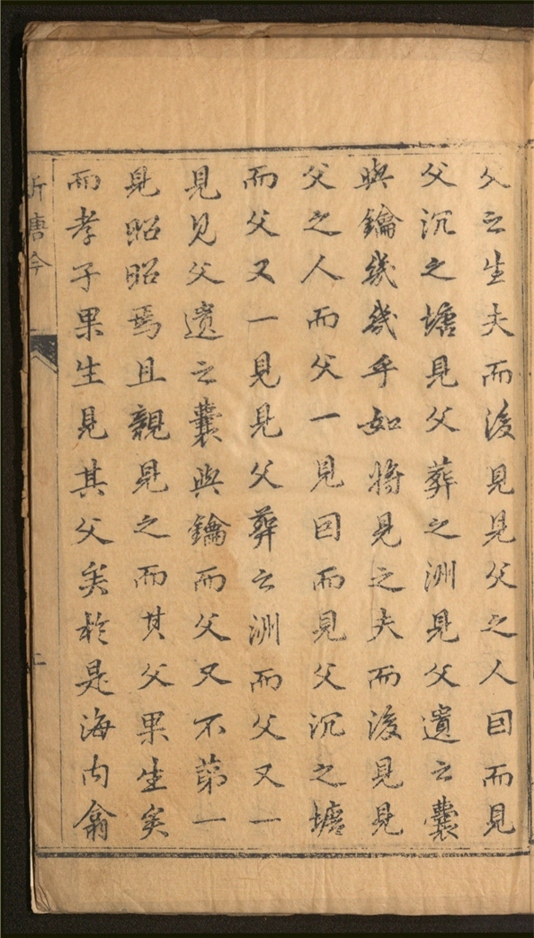 父之生夫而後見見父之人因而見
父沉之塘見父葬之洲見父遺之囊
與鑰幾幾乎如將見之夫而後見見
父之人而父一見因而見父沉之塘
而父又一見見父葬之洲而父又一
見見父遺之囊與鑰而父又不第一
見昭昭焉且親見之而其父果生矣
而孝子果生見其父矣於是海内翕